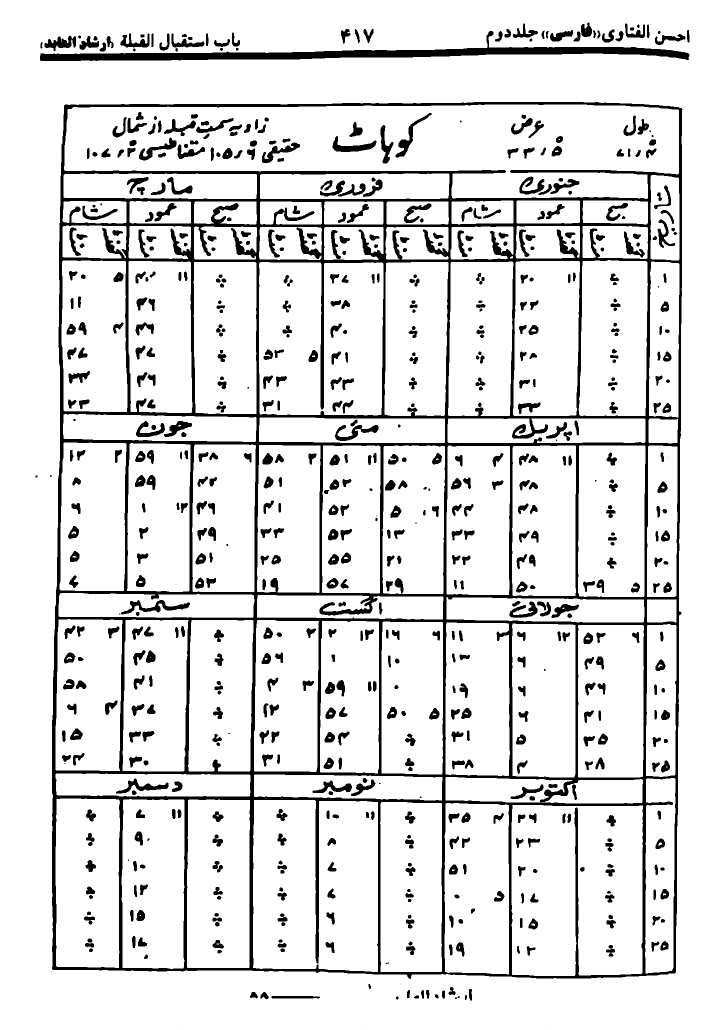 احسن الفتاوی «فارسی» جلد دوم ۴۱۷ باب استقبال القبلة (ارشاد العابد)
طول عرض کوہاٹ زاویہ سمت قبلہ از شمال
۷۱٫۴ ۳۳٫۵ حقیقی ۱۰۵٫۶ مقناطیسی ۱۰۷٫۲
تاریخ جنوری فروری مارچ
صبح عمود شام صبح عمود شام صبح عمود شام
گھنٹہ منٹ گھنٹہ منٹ گھنٹہ منٹ گھنٹہ منٹ گھنٹہ منٹ گھنٹہ منٹ گھنٹہ منٹ گھنٹہ منٹ گھنٹہ منٹ
۱ ÷ ۱۱ ۲۰ ÷ ÷ ۱۱ ۳۷ ÷ ÷ ۱۱ ۵ ۲۰
۵ ÷ ۲۲ ÷ ÷ ۳۸ ÷ ÷ ۴۶ ۱۱
۱۰ ÷ ۲۵ ÷ ÷ ۴۰ ÷ ÷ ۴۶ ۴ ۵۹
۱۵ ÷ ۲۸ ÷ ÷ ۴۱ ۵ ۵۳ ÷ ۴۷ ۴۷
۲۰ ÷ ۳۱ ÷ ÷ ۴۳ ۴۳ ÷ ۴۶ ۳۴
۲۵ ÷ ۳۳ ÷ ÷ ۴۴ ۳۱ ÷ ۴۷ ۲۳
اپریل مئی جون
۱ ÷ ۱۱ ۴۸ ۴ ۶ ۵ ۵۰ ۱۱ ۵۱ ۲ ۵۸ ۶ ۳۸ ۱۱ ۵۹ ۲ ۱۲
۵ ÷ ۴۸ ۳ ۵۶ ۵۸ ۵۲ ۵۱ ۴۲ ۵۹ ۸
۱۰ ÷ ۴۸ ۴۴ ۶ ۵ ۵۲ ۴۱ ۴۶ ۱۲ ۱ ۶
۱۵ ÷ ۴۹ ۳۳ ۱۳ ۵۳ ۳۳ ۴۹ ۲ ۵
۲۰ ÷ ۴۹ ۲۲ ۲۱ ۵۵ ۲۵ ۵۱ ۳ ۵
۲۵ ۵ ۳۹ ۵۰ ۱۱ ۲۹ ۵۷ ۱۹ ۵۳ ۵ ۴
جولائی اگست ستمبر
۱ ۶ ۵۳ ۱۲ ۶ ۳ ۱۱ ۶ ۱۶ ۱۲ ۲ ۲ ۵۰ ÷ ۱۱ ۴۷ ۳ ۴۲
۵ ۴۹ ۶ ۱۳ ۱۰ ۱ ۵۶ ÷ ۴۵ ۵۰
۱۰ ۴۶ ۶ ۱۹ ۰ ۱۱ ۵۹ ۳ ۴ ÷ ۴۱ ۵۸
۱۵ ۴۱ ۶ ۲۵ ۵ ۵۰ ۵۷ ۱۲ ÷ ۳۷ ۴ ۶
۲۰ ۳۵ ۵ ۳۱ ÷ ۵۴ ۲۲ ÷ ۳۳ ۱۵
۲۵ ۲۸ ۴ ۳۸ ÷ ۵۱ ۳۱ ÷ ۳۰ ۲۴
اکتوبر نومبر دسمبر
۱ ÷ ۱۱ ۲۶ ۴ ۳۵ ÷ ۱۱ ۱۰ ÷ ÷ ۱۱ ۷ ÷
۵ ÷ ۲۳ ۴۲ ÷ ۸ ÷ ÷ ۹ ÷
۱۰ ÷ ۲۰ ۵۱ ÷ ۷ ÷ ÷ ۱۰ ÷
۱۵ ÷ ۱۷ ۵ ۰ ÷ ۷ ÷ ÷ ۱۲ ÷
۲۰ ÷ ۱۵ ۱۰ ÷ ۶ ÷ ÷ ۱۵ ÷
۲۵ ÷ ۱۲ ۱۹ ÷ ۶ ÷ ÷ ۱۷ ÷
۸۸